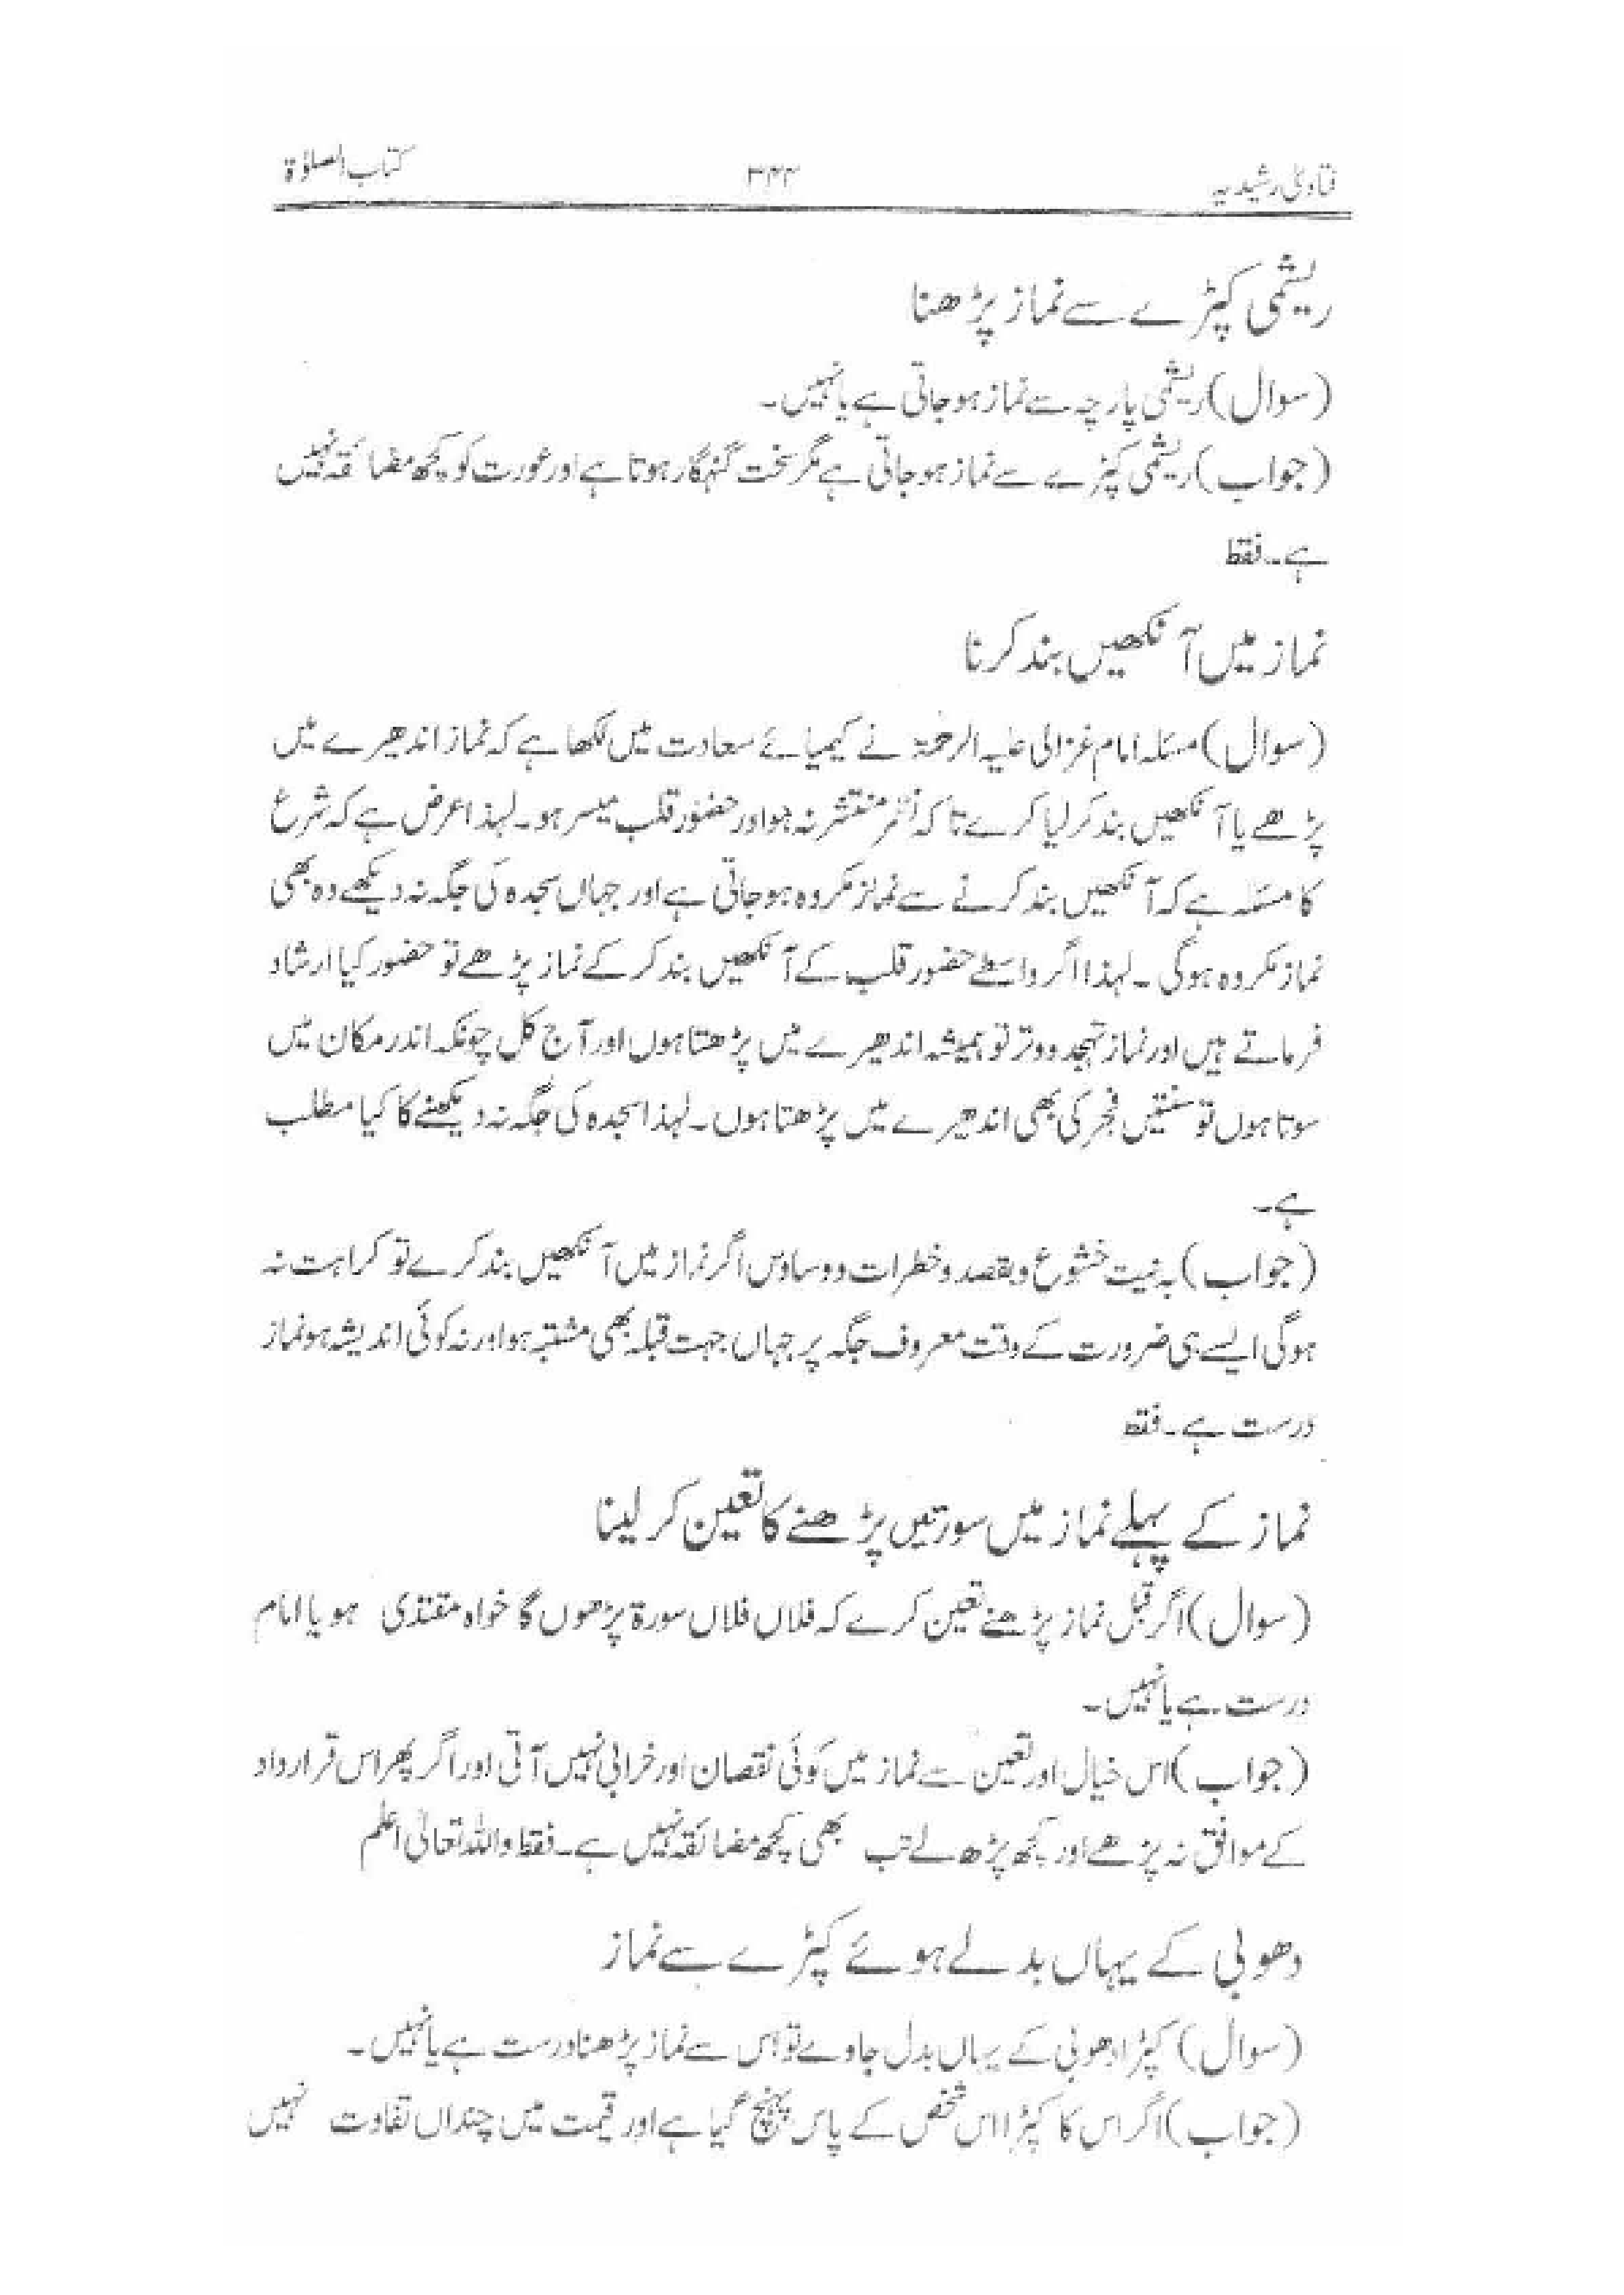 فتاویٰ رشیدیہ ۳۴۴ کتاب الصلوٰۃ
ریشمی کپڑے سے نماز پڑھنا
(سوال) ریشمی پارچہ سے نماز ہو جاتی ہے یا نہیں۔
(جواب) ریشمی کپڑے سے نماز ہو جاتی ہے مگر سخت گنہگار ہوتا ہے اور عورت کو کچھ مضائقہ نہیں
ہے۔ فقط
نماز میں آنکھیں بند کرنا
(سوال) مسئلہ امام غزالی علیہ الرحمۃ نے کیمیائے سعادت میں لکھا ہے کہ نماز اندھیرے میں
پڑھے یا آنکھیں بند کر لیا کرے تا کہ نظر منتشر نہ ہو اور حضور قلب میسر ہو۔ لہذا عرض ہے کہ شرع
کا مسئلہ ہے کہ آنکھیں بند کرنے سے نماز مکروہ ہو جاتی ہے اور جہاں سجدہ کی جگہ نہ دیکھے وہ بھی
نماز مکروہ ہوگی ۔ لہذا اگر واسطے حضور قلب کے آنکھیں بند کر کے نماز پڑھے تو حضور کیا ارشاد
فرماتے ہیں اور نماز تہجد و وتر تو ہمیشہ اندھیرے میں پڑھتا ہوں اور آج کل چونکہ اندر مکان میں
سوتا ہوں تو سنتیں فجر کی بھی اندھیرے میں پڑھتا ہوں۔ لہذا سجدہ کی جگہ نہ دیکھنے کا کیا مطلب
ہے۔
(جواب) بہ نیت خشوع و بقصد و خطرات و وساوس اگر نماز میں آنکھیں بند کرے تو کراہت نہ
ہوگی ایسے ہی ضرورت کے وقت معروف جگہ پر جہاں جہت قبلہ بھی مشتبہ ہو اور نہ کوئی اندیشہ ہو نماز
درست ہے۔ فقط
نماز کے پہلے نماز میں سورتیں پڑھنے کا تعین کر لینا
(سوال) اگر قبل نماز پڑھنے تعین کرے کہ فلاں فلاں سورۃ پڑھوں گا خواہ مقتدی ہو یا امام
درست ہے یا نہیں۔
(جواب) اس خیال اور تعین سے نماز میں کوئی نقصان اور خرابی نہیں آتی اور اگر پھر اس قرارداد
کے موافق نہ پڑھے اور کچھ پڑھ لے تب بھی کچھ مضائقہ نہیں ہے۔ فقط واللہ تعالیٰ اعلم
دھوبی کے یہاں بدلے ہوئے کپڑے سے نماز
(سوال) کپڑا دھوبی کے یہاں بدل جاوے تو اس سے نماز پڑھنا درست ہے یا نہیں۔
(جواب) اگر اس کا کپڑا اس شخص کے پاس پہنچ گیا ہے اور قیمت میں چنداں تفاوت نہیں